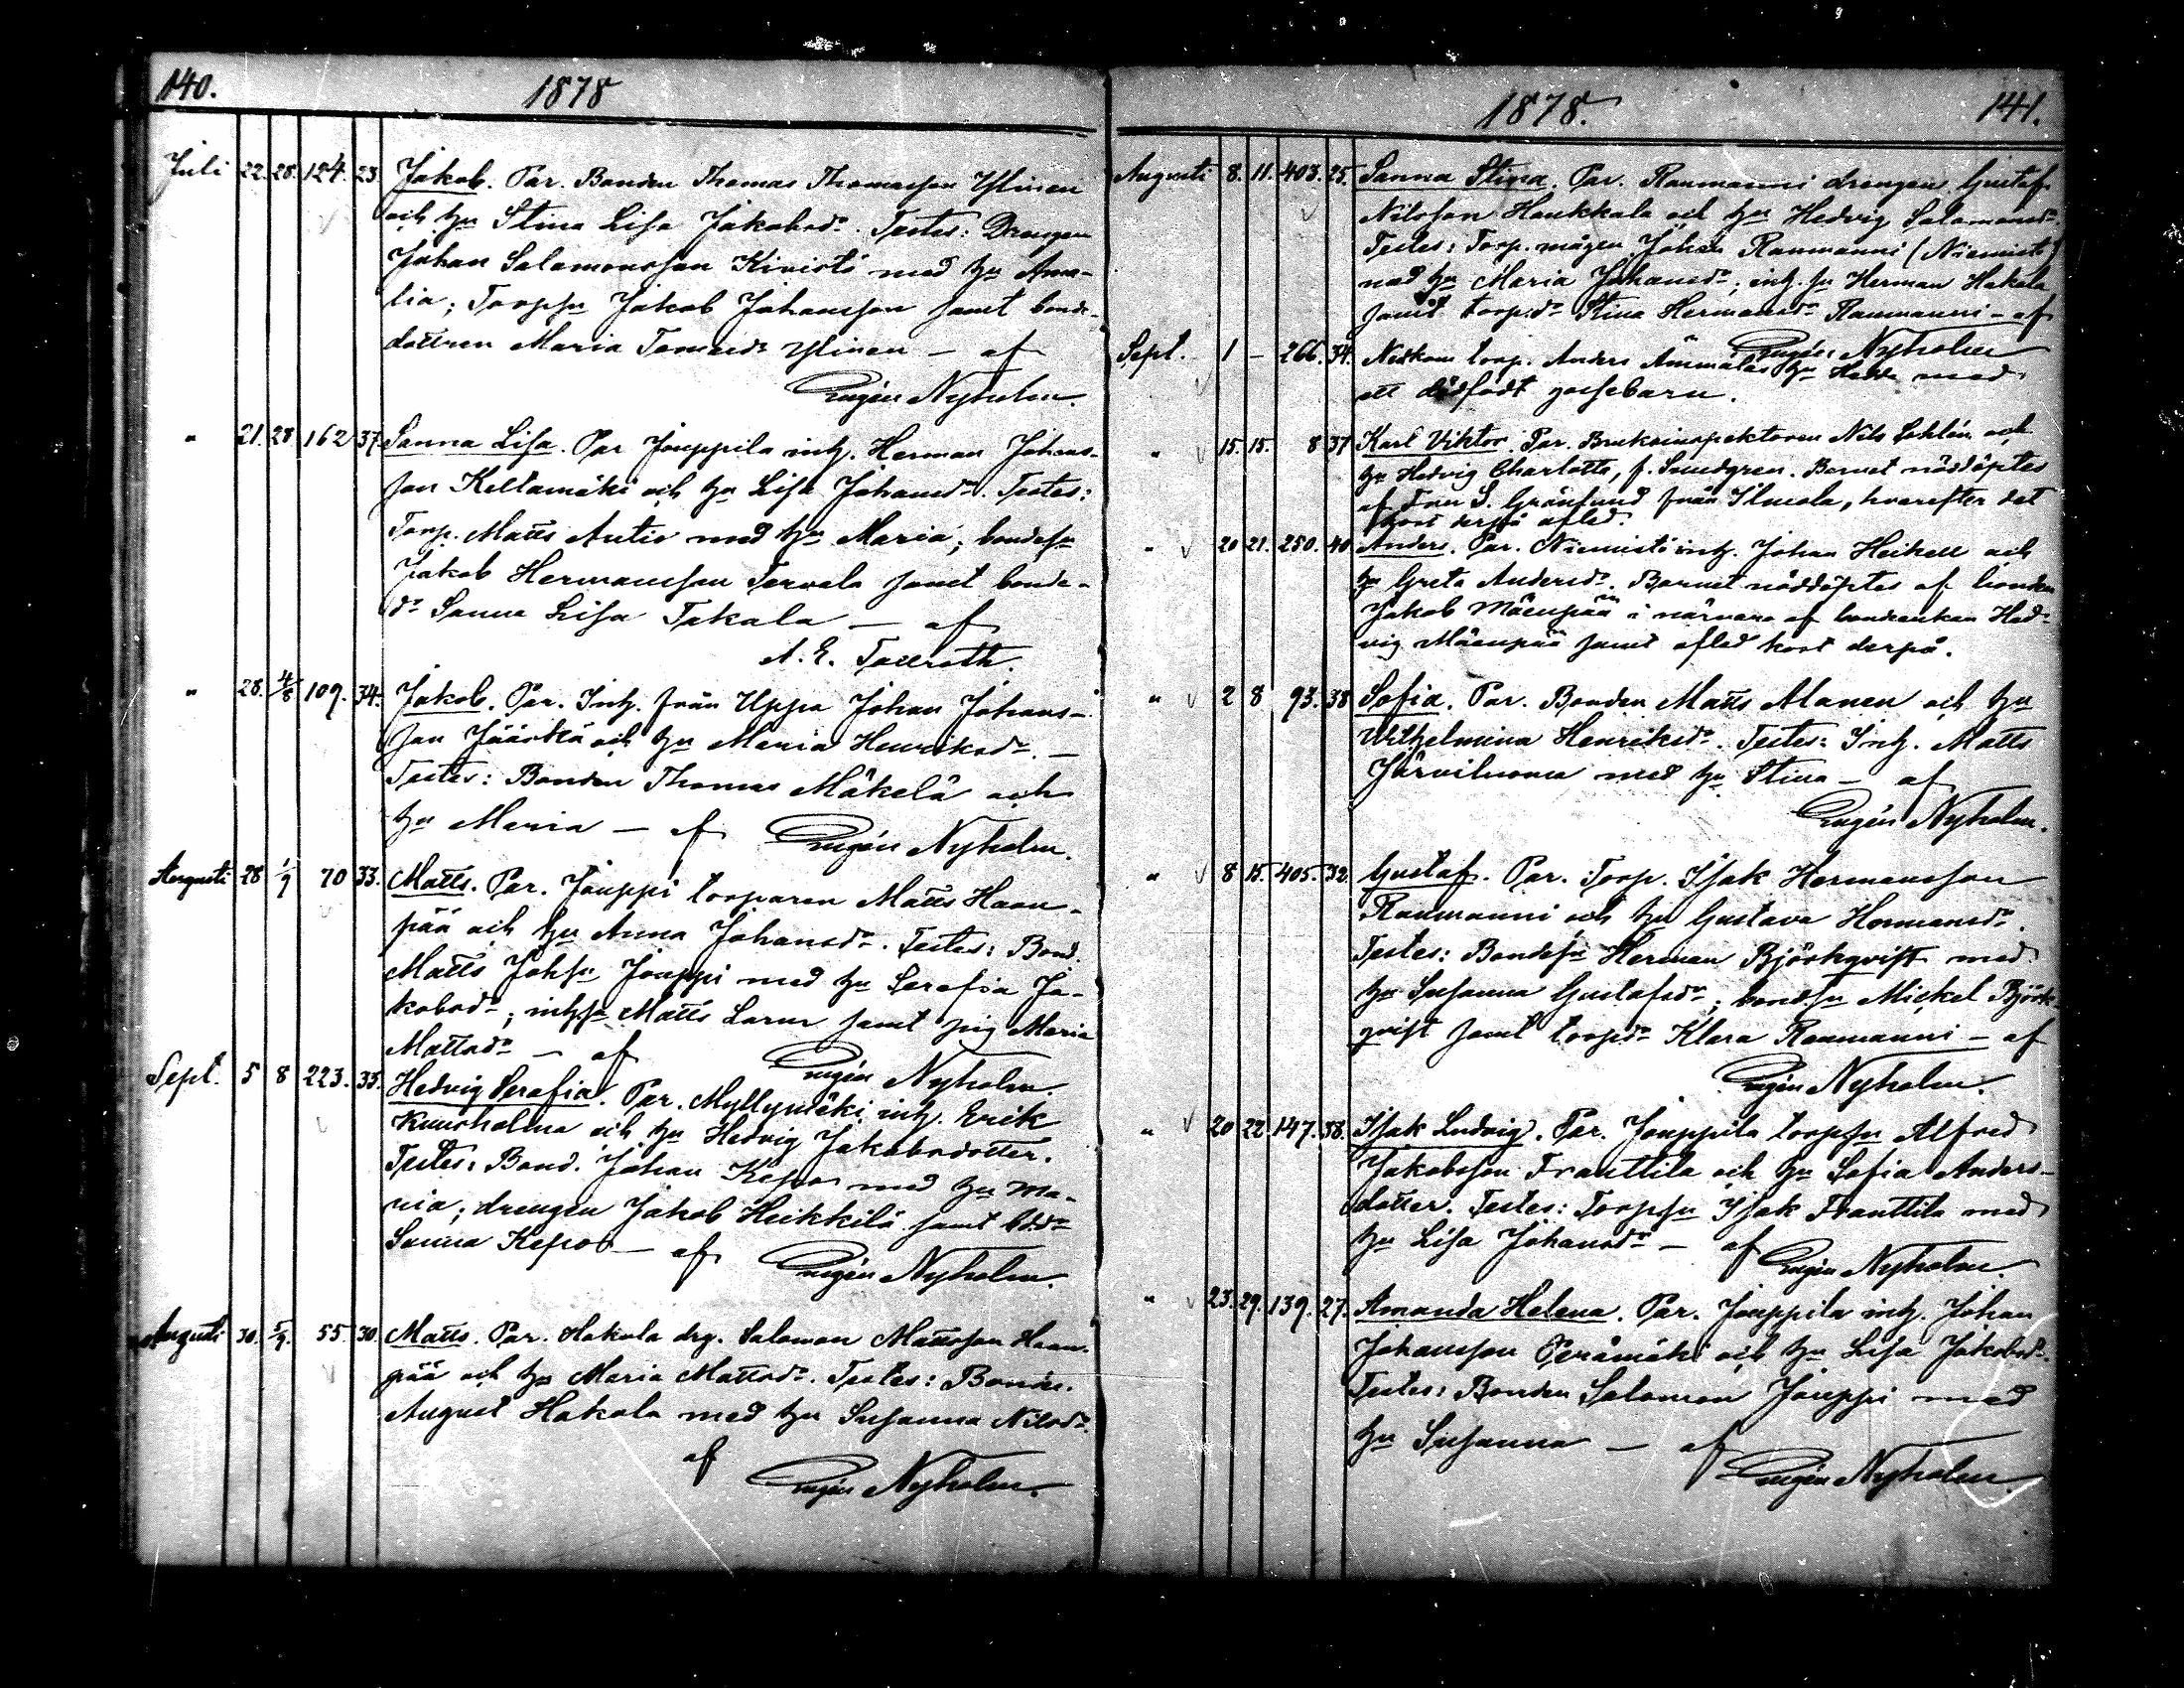 140.
1878
Juli 22. 28. 124. 23. Jakob. Par. Bonden Thomas Thomasson Ylinen
och hu Stina Lisa Jakobsdr. Testes: Drengen
Johan Salamonsson Kivistö med hu Ama-
lia; Torpsn Jakob Johansson samt bonde-
dottren Maria Tomasdr Ylinen — af
Eugén Nyholm.
" 21. 28 162 37. Sanna Lisa. Par Jouppila inh. Herman Johans-
son Keltamäki och hu Lisa Johansdr. Testes:
Torp. Matts Autio med hu Maria; bondesn
Jakob Hermansson Tervala samt bonde-
dr Sanna Lisa Takala — af
A. E. Taurath.
" 28. 4/8 109. 34. Jakob. Par. Inh. från Uppo Johan Johans-
son Jääskä och hu Maria Henriksdr. —
Testes: Bonden Thomas Mäkelä och
hu Maria — af Eugén Nyholm.
Augusti 28 1/9 70 33. Matts. Par. Jouppi torparen Matts Haan-
pää och hu Anna Johansdr. Testes: Bond.
Matts Johsn Jouppi med hu Serafia Ja-
kobsdr; inhsn Matts Larm samt pig Maria
Mattsdr — af Eugén Nyholm.
Sept. 5 8 223. 33. Hedvig Serafia. Par. Myllymäki inh. Erik
Kuusholma och hu Hedvig Jakobsdotter.
Testes: Bond. Johan Kepo med hu Ma-
ria; drengen Jakob Heikkilä samt bdr
Sanna Kepo — af Eugén Nyholm.
Augusti 30. 5/9. 55. 30. Matts. Par. Hakola drg. Salomon Mattsson Haan-
pää och hu Maria Mattsdr. Testes: Bonde.
August Hakola med hu Susanna Nilsdr.
af Eugén Nyholm.
1878.
141.
Augusti 8. 11. 403. 25. Sanna Stina. Par. Raumanni drengen Gustaf
Nilsson Haukkala och hu Hedvig Salamonsdr
Testes: Torp. mågen Johan Raumanni (Niemistö)
med hu Maria Johansdr; inh. sn Herman Hakola
samt torp.dr Stina Hermansdr Raumanni — af
Eugén Nyholm
Sept. 1 — 266. 34. Nedkom torp. Anders Ämmäläs hu Hedda med
ett dödfödt gossebarn.
" 15. 15. 8 37 Karl Viktor. Par. Bruksinspektoren Nils Sohlén och
hu Hedvig Charlotta, f. Sundgren. Barnet nöddöptes
af Fru S. Granlund från Ilmola, hvarefter det
kort derpå afled.
" 20 21. 250. 40 Anders. Par. Niemistö inh. Johan Heikell och
hu Greta Andersdr. Barnet nöddöptes af bonden
Jakob Mäenpää i närvaro af bondeenkan Hed-
vig Mäenpää samt afled kort derpå.
" 2 8 93. 38 Sofia. Par. Bonden Matts Alanen och hu
Wilhelmina Henriksdr. Testes: Inh. Matts
Järviluoma med hu Stina — af
Eugén Nyholm.
" 8 15. 405. 32 Gustaf. Par. Torp. Isak Hermansson
Raumanni och hu Gustava Hermansdr.
Testes: Bondesn Herman Björkqvist med
hu Susanna Gustafsdr; bondsn Mickel Björk-
qvist samt torpdr Klara Raumanni — af
Eugén Nyholm.
" 20 22. 147. 38. Isak Ludvig. Par. Jouppila torpsn Alfred
Jakobsson Franttila och hu Sofia Anders-
dotter. Testes: Torpsn Isak Franttila med
hu Lisa Johansdr — af Eugén Nyholm.
" 23. 29. 139. 27. Amanda Helena. Par. Jouppila inh. Johan
Johansson Perämäki och hu Lisa Jakobsdr.
Testes: Bonden Salomon Jouppi med
hu Susanna — af
Eugén Nyholm.